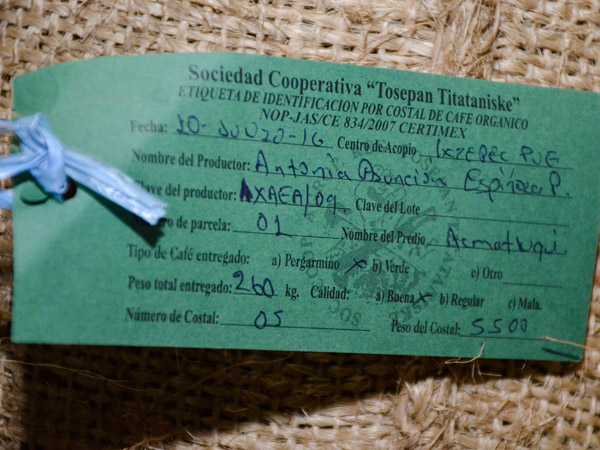 Sociedad Cooperativa “Tosepan Titataniske”
ETIQUETA DE IDENTIFICACION POR COSTAL DE CAFE ORGANICO
NOP-JAS/CE 834/2007 CERTIMEX
Fecha: 10- -16 Centro de Acopio IXTEPEC PUE
Nombre del Productor: Antonia Asuncion Espinoza P.
Clave del productor: AXAEA/09 Clave del Lote
de parcela: 01 Nombre del Predio
Tipo de Café entregado: a) Pergamino x b) Verde c) Otro
Peso total entregado: 260 kg. Calidad: a) Buena x b) Regular c) Mala.
Número de Costal: 05 Peso del Costal: 5500